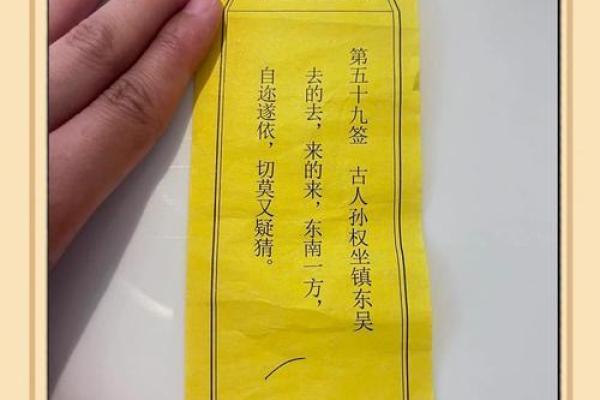 第五十九签　古人孙权坐镇东吴
去的去，来的来，东南一方，
自迩遂依，切莫又疑猜。